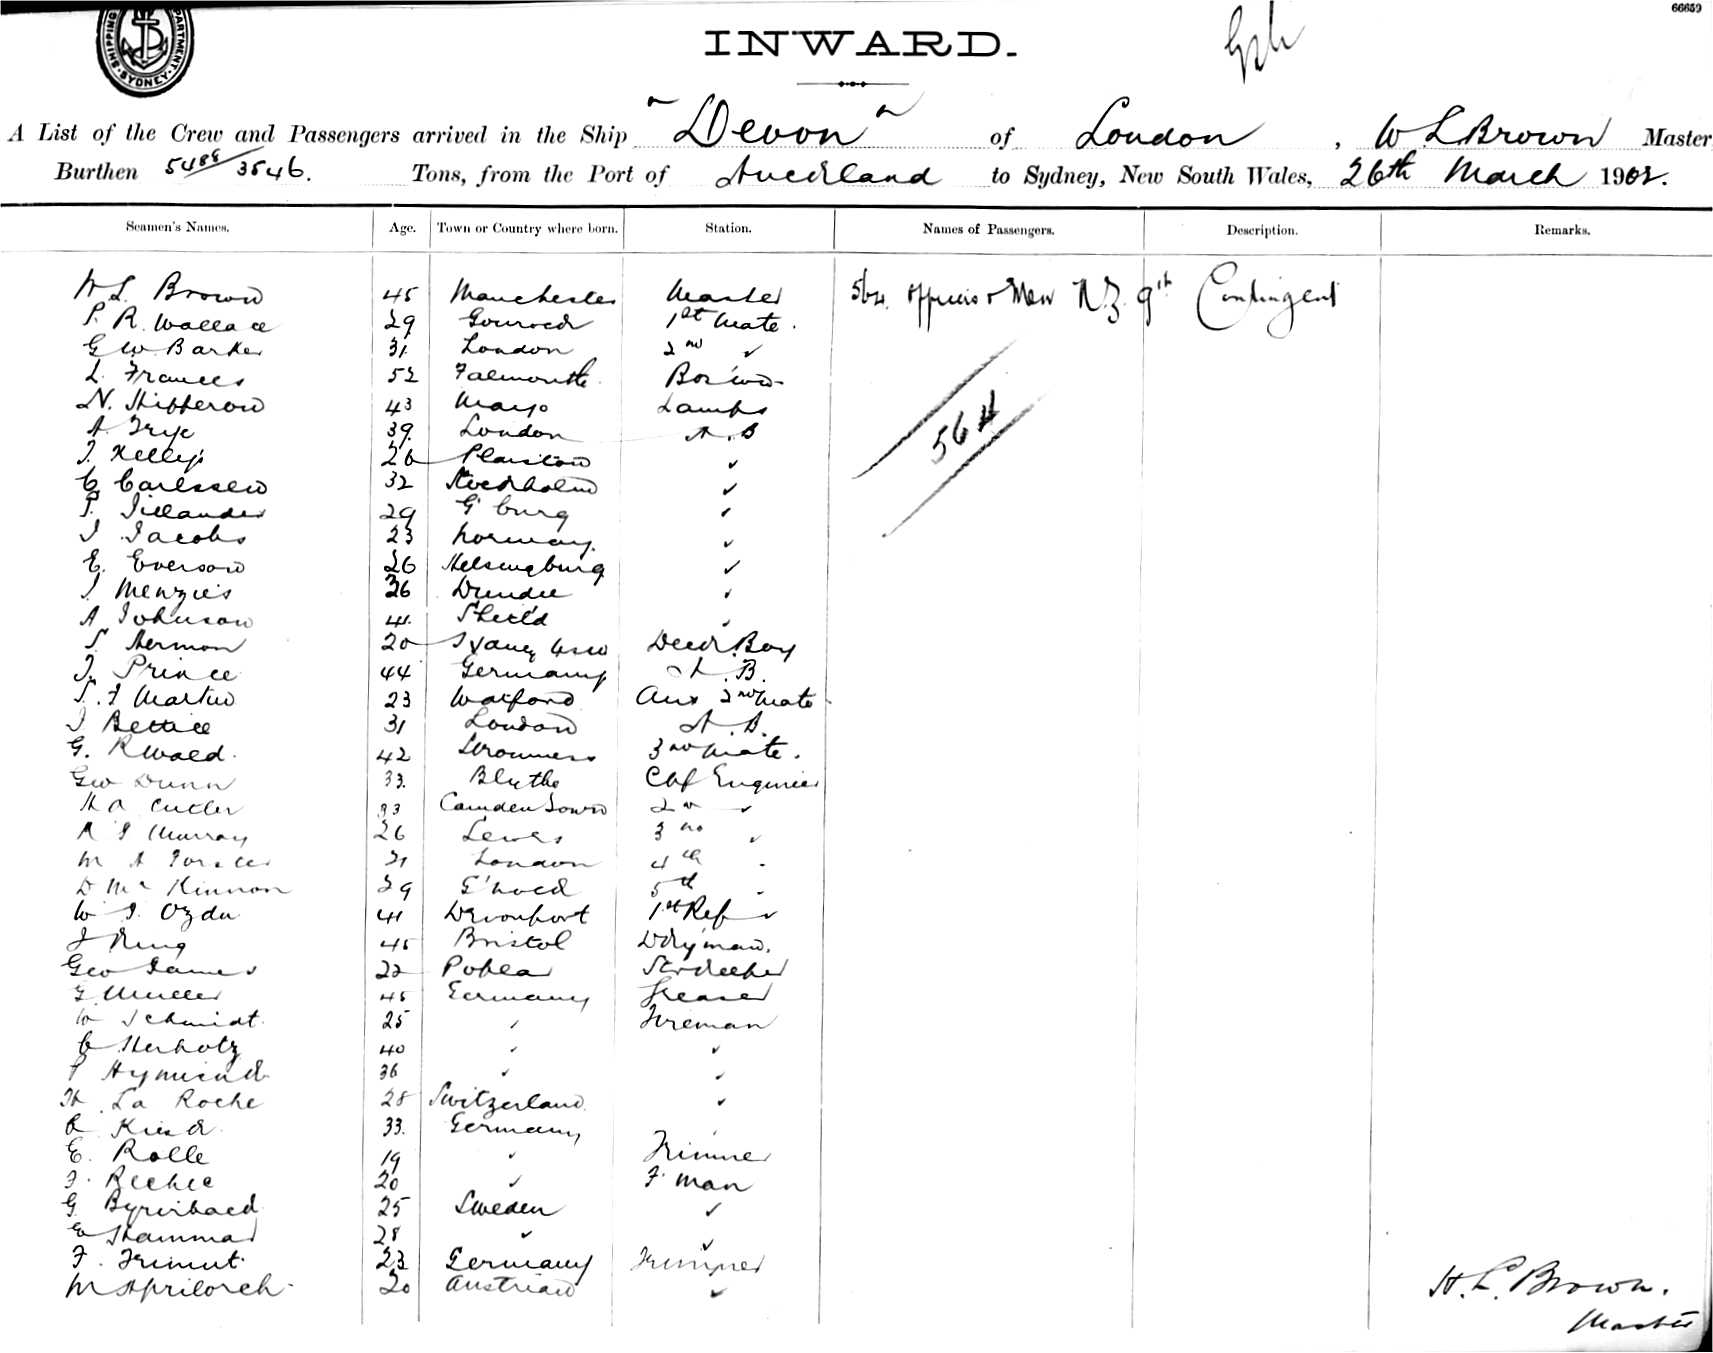 66659
SHIPPING DEPARTMENT SYDNEY
INWARD.
A List of the Crew and Passengers arrived in the Ship "Devon" of London, W L Brown Master
Burthen 5489/3546. Tons, from the Port of Auckland to Sydney, New South Wales, 26th March 1902.
Seamen's Names. Age. Town or Country where born. Station. Names of Passengers. Description. Remarks.
H L. Brown 45 Manchester Master 564 Officers & Men N.Z. 9th Contingent
P. R. Wallace 29 Gourock 1st Mate.
G W Barker 31 London 2nd ✓
L. Frances 52 Falmouth Bos'wn
N. Hipperow 43 Mayo Lamps
A. Frye 39. London A.B 564
J. Kelly 26 Plaistow ✓
C Carlssen 32 Stockholm ✓
P. 29 G'burg ✓
J Jacobs 23 Norway. ✓
E. Everson 26 Helsingburg ✓
J. Menzies 36 Dundee ✓
A Johnson 41. Shield ✓
S. Hermon 20 Sydney NSW Deck Boy
J. Prince 44 Germany A.B.
S. F Martin 23 Watford Aux 2nd Mate
J Bettice 31 London A.B.
G. R Wald. 42 Stromness 3rd Mate.
Geo Dunn 33. Blythe Chf Engineer
H A Cutler 33 Camden Town 2nd ✓
R J Murray 26 Lewes 3rd ✓
M A Forster 31 London 4th
D McKinnon 29 G'nock 5th
W J. 41 Devonport 1st Ref ✓
J King 45 Bristol D'kyman.
Geo James 22 Poplar Strkeeper
G. Muller 45 Germany Greaser
W Schmidt. 25 ✓ Fireman
C Herholz 40 ✓ ✓
P 36 ✓ ✓
H. La Roche 28 Switzerland ✓
R 33. Germany
E. Rolle 19 ✓ Trimmer
F. 20 ✓ F. man
G. 25 Sweden ✓
E Hammar 28 ✓ ✓
F. 23 Germany Trimmer
M 20 Austrian ✓
H. L. Brown.
Master